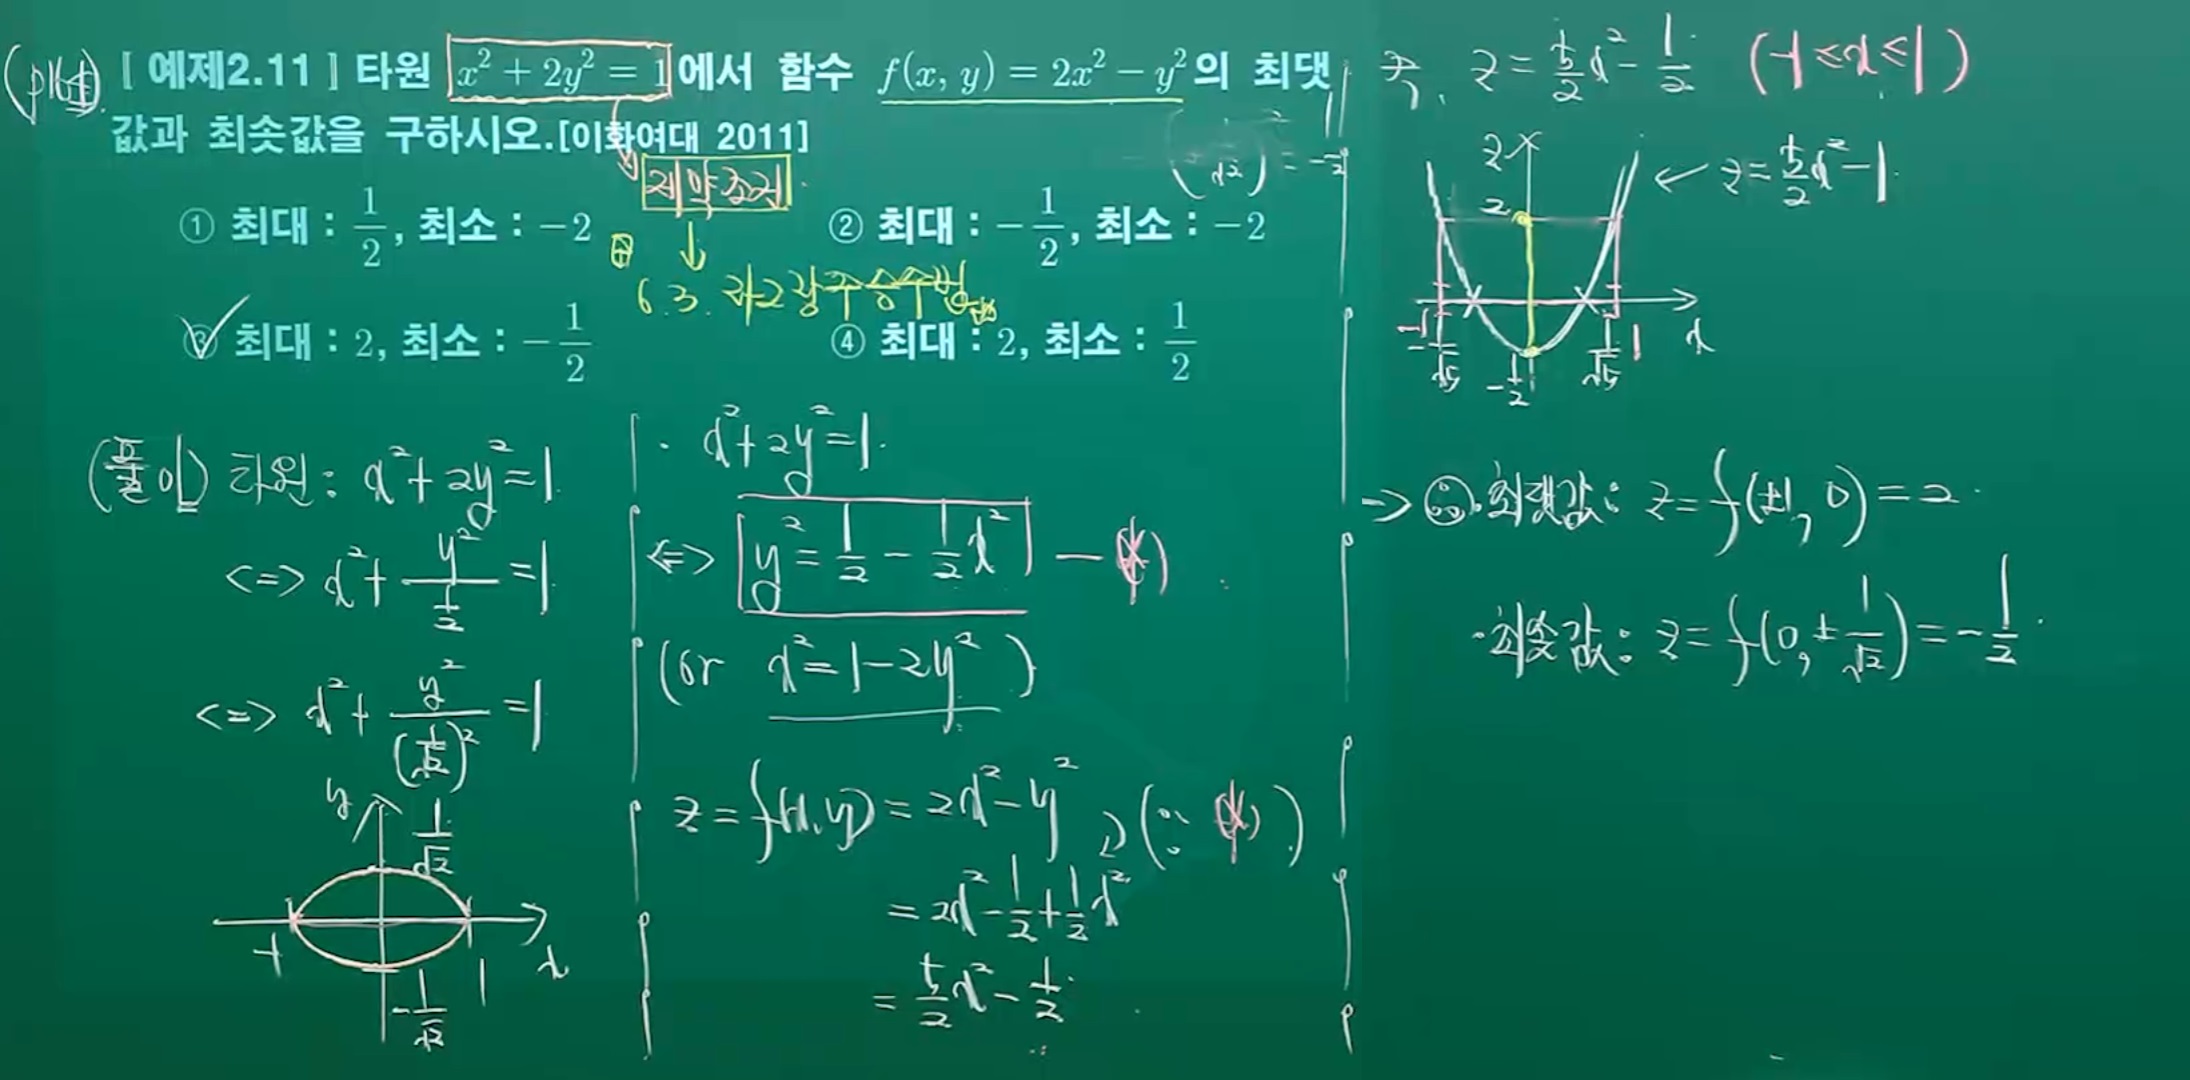 (pf) [ 예제2.11 ] 타원 x² + 2y² = 1 에서 함수 f(x, y) = 2x² − y² 의 최댓
값과 최솟값을 구하시오.[이화여대 2011]
제약조건
① 최대 : 1/2, 최소 : −2
② 최대 : −1/2, 최소 : −2
6.3. 라그랑주승수법
③ 최대 : 2, 최소 : −1/2
④ 최대 : 2, 최소 : 1/2
(풀이) 타원: x²+2y²=1
<=> x²+y²/(1/2)=1
<=> x²+y²/(1/√2)²=1
y
1/√2
-1
1
x
-1/√2
· x²+2y²=1.
<=> y²=1/2-1/2x² — (*)
(or x²=1-2y²)
z=f(x,y)=2x²-y²
(∵ (*))
=2x²-1/2+1/2x²
=5/2x²-1/2
즉, z=5/2x²-1/2 (-1≤x≤1)
z
2
← z=5/2x²-1
-1
-1/√5
-1/2
1/√5
1
x
=> ∴ · 최댓값: z=f(±1, 0)=2.
· 최솟값: z=f(0, ±1/√2)=-1/2.